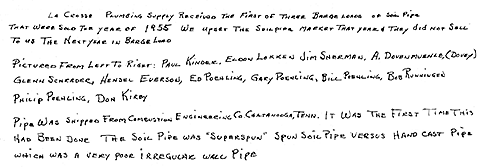 La Crosse Plumbing Supply Received the First of Three Barge Loads of Soil Pipe
That were Sold the year of 1955 We upset the Soil pipe Market That year & They did not Sell
To us The Next year in Barge Load
Pictured From Left To Right: Paul Kinder, Eldon Lokken Jim Sherman, A. Dovenmuehle, (Dovey)
Glenn Schroder, Hensel Everson, Ed Poehling, Gary Poehling, Bill Poehling, Bob Runningen
Philip Poehling, Don Kirby
Pipe Was Shipped From Combustion Engineering Co. Chatanooga, Tenn. It Was The First Time This
Had Been Done The Soil Pipe Was "Superspun" Spun Soil Pipe Versus Hand Cast Pipe
which was a very poor irregular wall Pipe